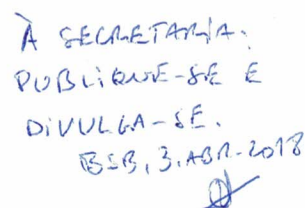 À SECRETARIA.
PUBLIQUE-SE E
DIVULGA-SE.
BSB, 3.ABR.2018